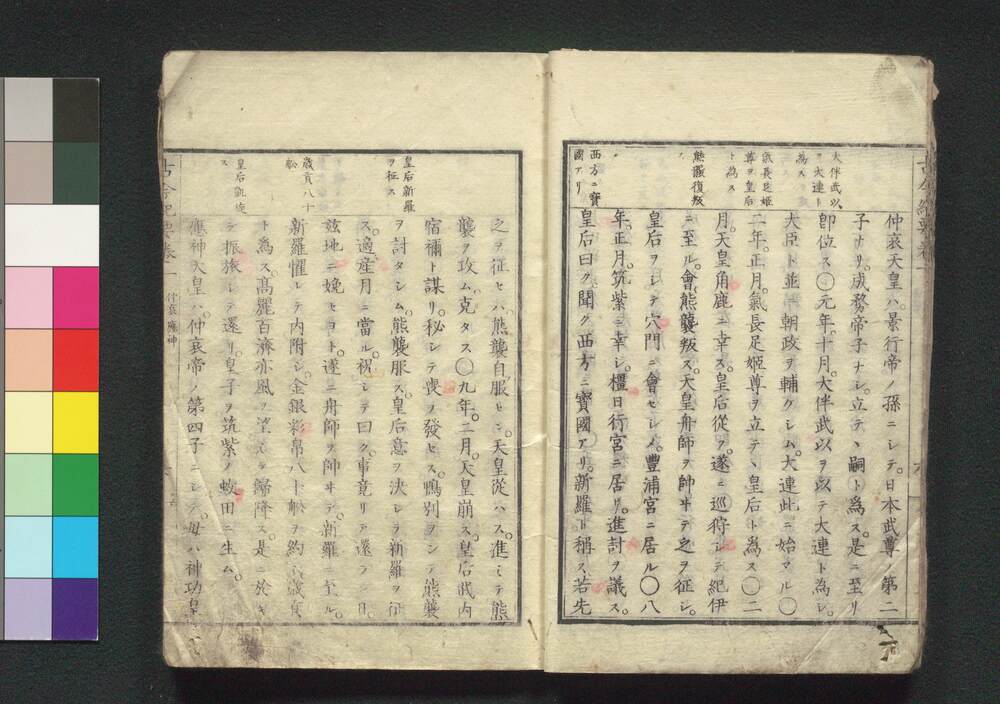 大伴武以
ヲ大連ト
為ス
氣長足姫
尊ヲ皇后
ト為ス
熊襲復叛
西方ニ寶
國アリ
仲哀天皇ハ景行帝ノ孫ニシテ。日本武尊ノ第二
子ナリ。成務帝子ナシ。立テヽ嗣ト為ス。是ニ至リ
卽位ス〇元年。十月。大伴武以ヲ以テ大連ト為シ。
大臣ト並ニ朝政ヲ輔ケシム。大連此ニ始マル〇
二年。正月。氣長足姫尊ヲ立テヽ皇后ト為ス〇二
月。天皇角鹿ニ幸ス。皇后從フ。遂ニ巡狩シテ紀伊
ニ至ル。會熊襲叛ス。天皇舟師ヲ帥ヰテ之ヲ征シ。
皇后ヲシテ穴門ニ會セシメ。豐浦宮ニ居ル〇八
年。正月。筑紫ニ幸シ。橿日行宮ニ居リ。進討ヲ議ス。
皇后曰ク聞ク西方ニ寶國アリ。新羅ト稱ス。若先
皇后新羅
ヲ征ス
歳貢八十
舩
皇后凱旋
ス
之ヲ征セハ。熊襲自服セン。天皇從ハス。進ミテ熊
襲ヲ攻ム。克タス〇九年。二月。天皇崩ス。皇后武内
宿禰ト謀リ。秘シテ喪ヲ發セス。鴨別ヲシテ熊襲
ヲ討タシム。熊襲服ス。皇后意ヲ決シテ新羅ヲ征
ス。適產月ニ當ル。祝シテ曰ク。事竟リテ還ラン日。
兹地ニ娩セヨト。遂ニ舟師ヲ帥ヰテ。新羅ニ至ル。
新羅懼レテ内附シ。金銀彩帛八十舩ヲ約シ歳貢
ト為ス。高麗百濟亦風ヲ望ミテ歸降ス。是ニ於キ
テ振旅シテ還リ。皇子ヲ筑紫ノ蚊田ニ生ム。
應神天皇ハ。仲哀帝ノ第四子ニシテ。母ハ神功皇
仲哀 應神